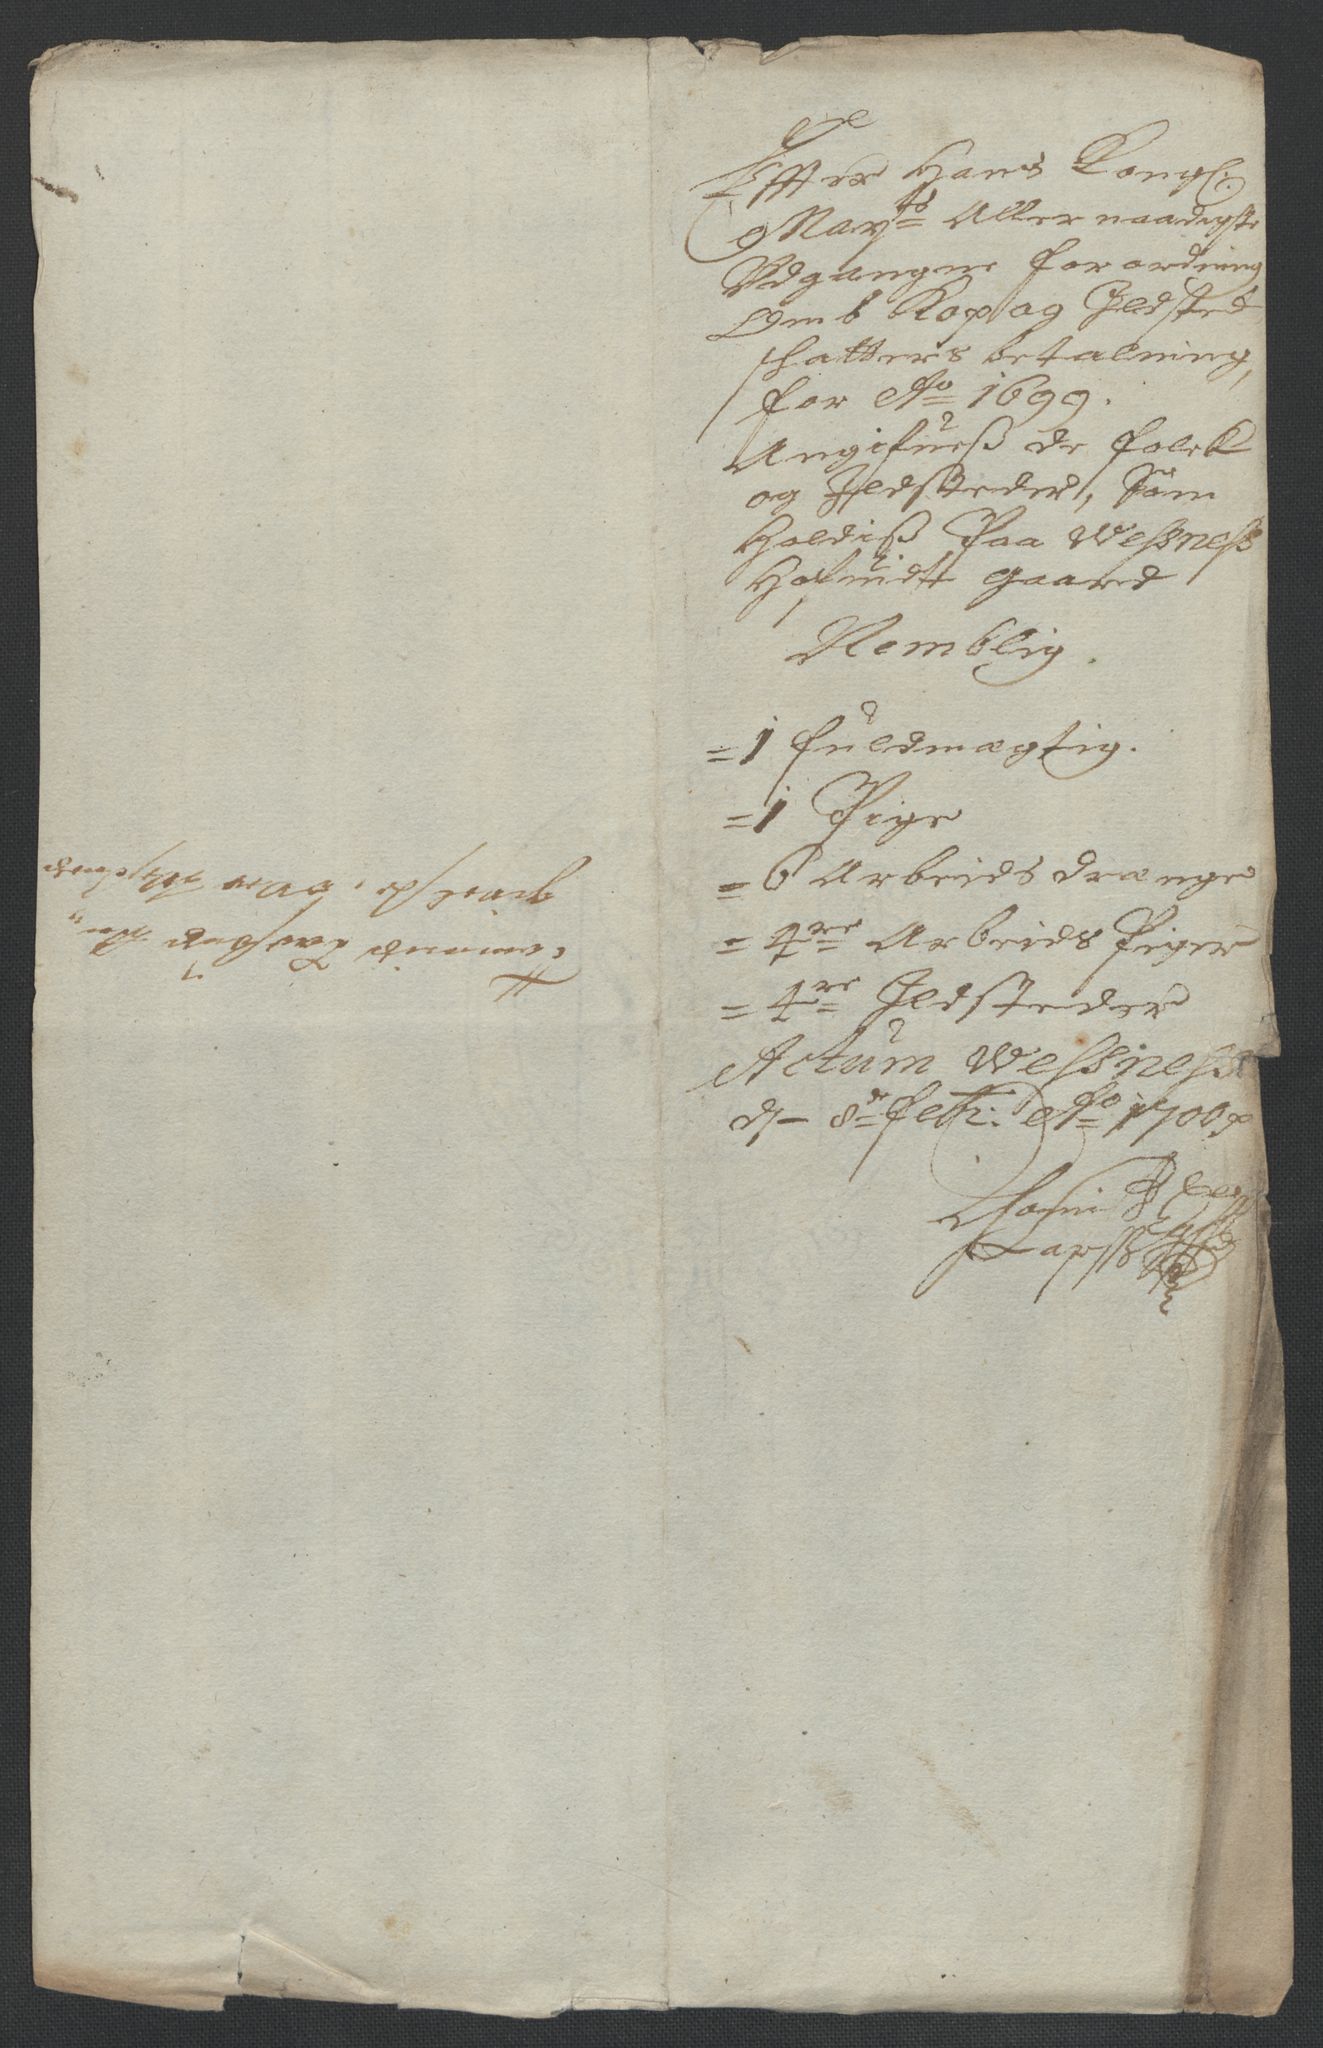 Effter Hans Kongl:
May^ts Allernaadigste
Udgangne forordning
Omb Kop og Ildsted
skatters betalning,
for A^o 1699.
Angifueß de folck
og Ildsteder, som
Holdiß Paa Wessness
Hofuidt gaard
Nemblig
= 1 fuldmægtig.
= 1 Pige
= 6 Arbeids drænge
= 4^re Arbeids Piger
= 4^re Ildsteder
Actum Wessness
d. 8^de Febr: A^o 1700